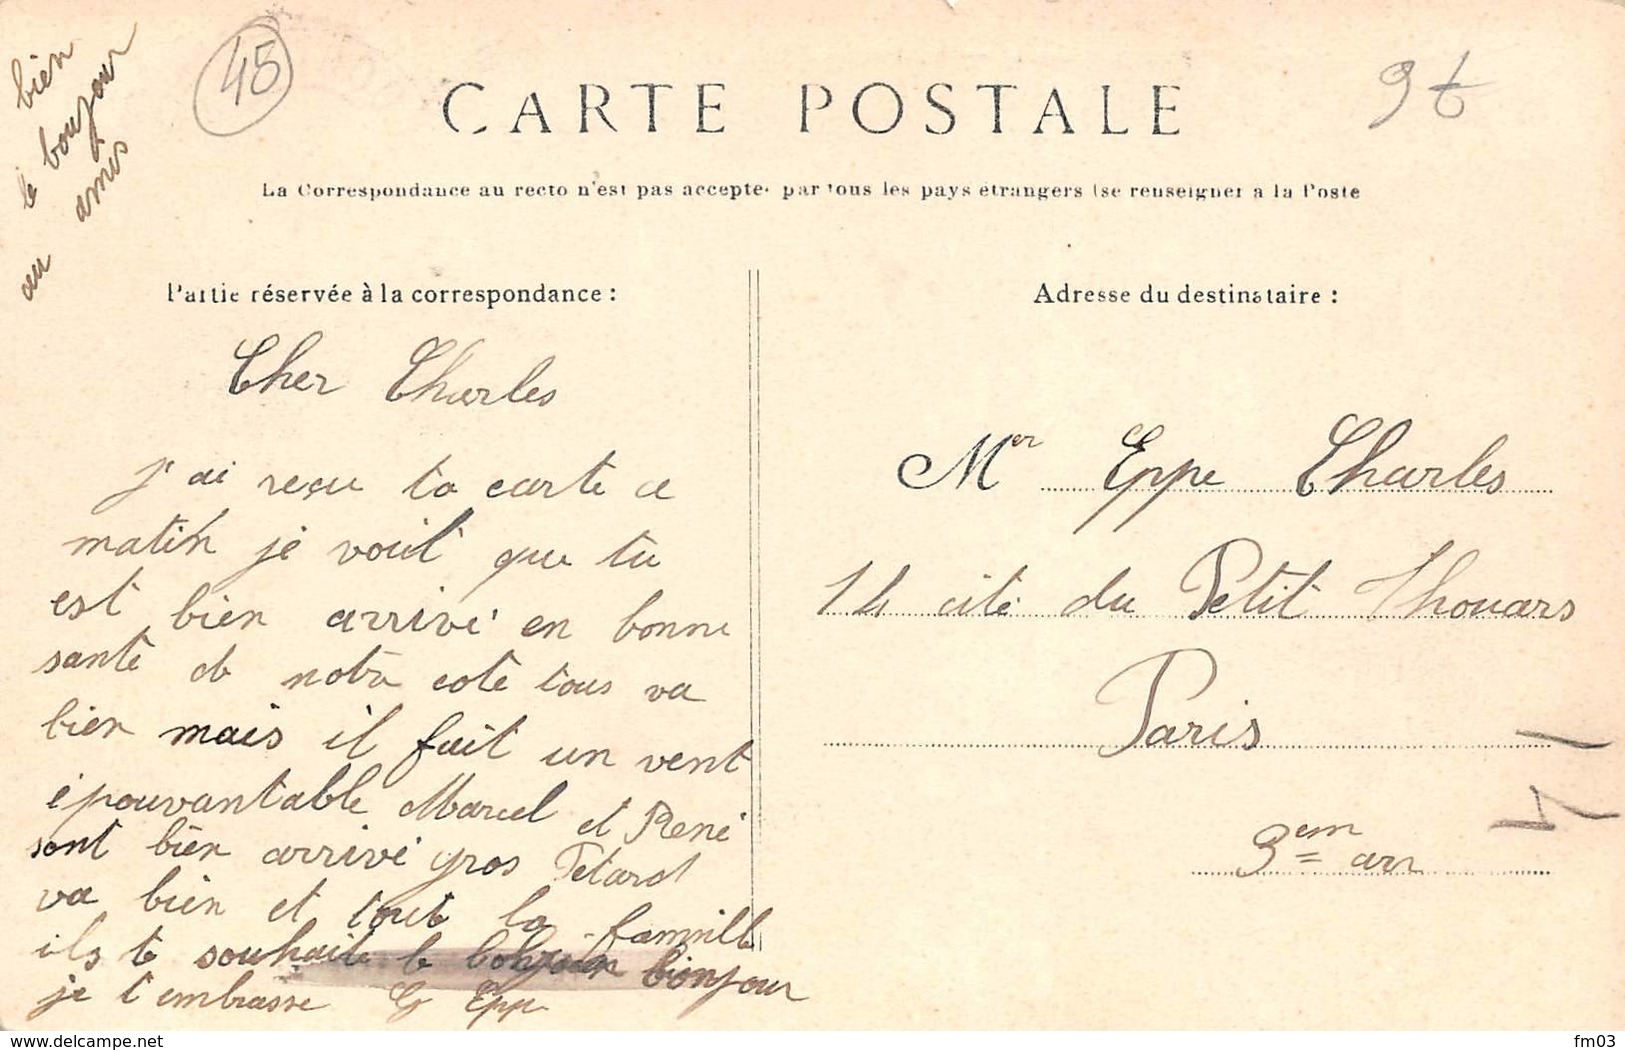 bien
le boujour
au amis
45
CARTE POSTALE
La Correspondance au recto n'est pas accepte par tous les pays étrangers (se renseigner a la Poste
Partie réservée à la correspondance :
Cher Charles
j'ai reçu ta carte ce
matin je voit que tu
est bien arrivé en bonne
santé de notre coté tous va
bien mais il fait un vent
épouvantable Marcel et René
sont bien arrivé gros Petard
va bien et tout la famille
ils te souhaite le bonjour bonjour
je t'embrasse G Epp
Adresse du destinataire :
Mer Eppe Charles
14 cité du Petit Thouars
Paris
3em arr
www.delcampe.net
fm03